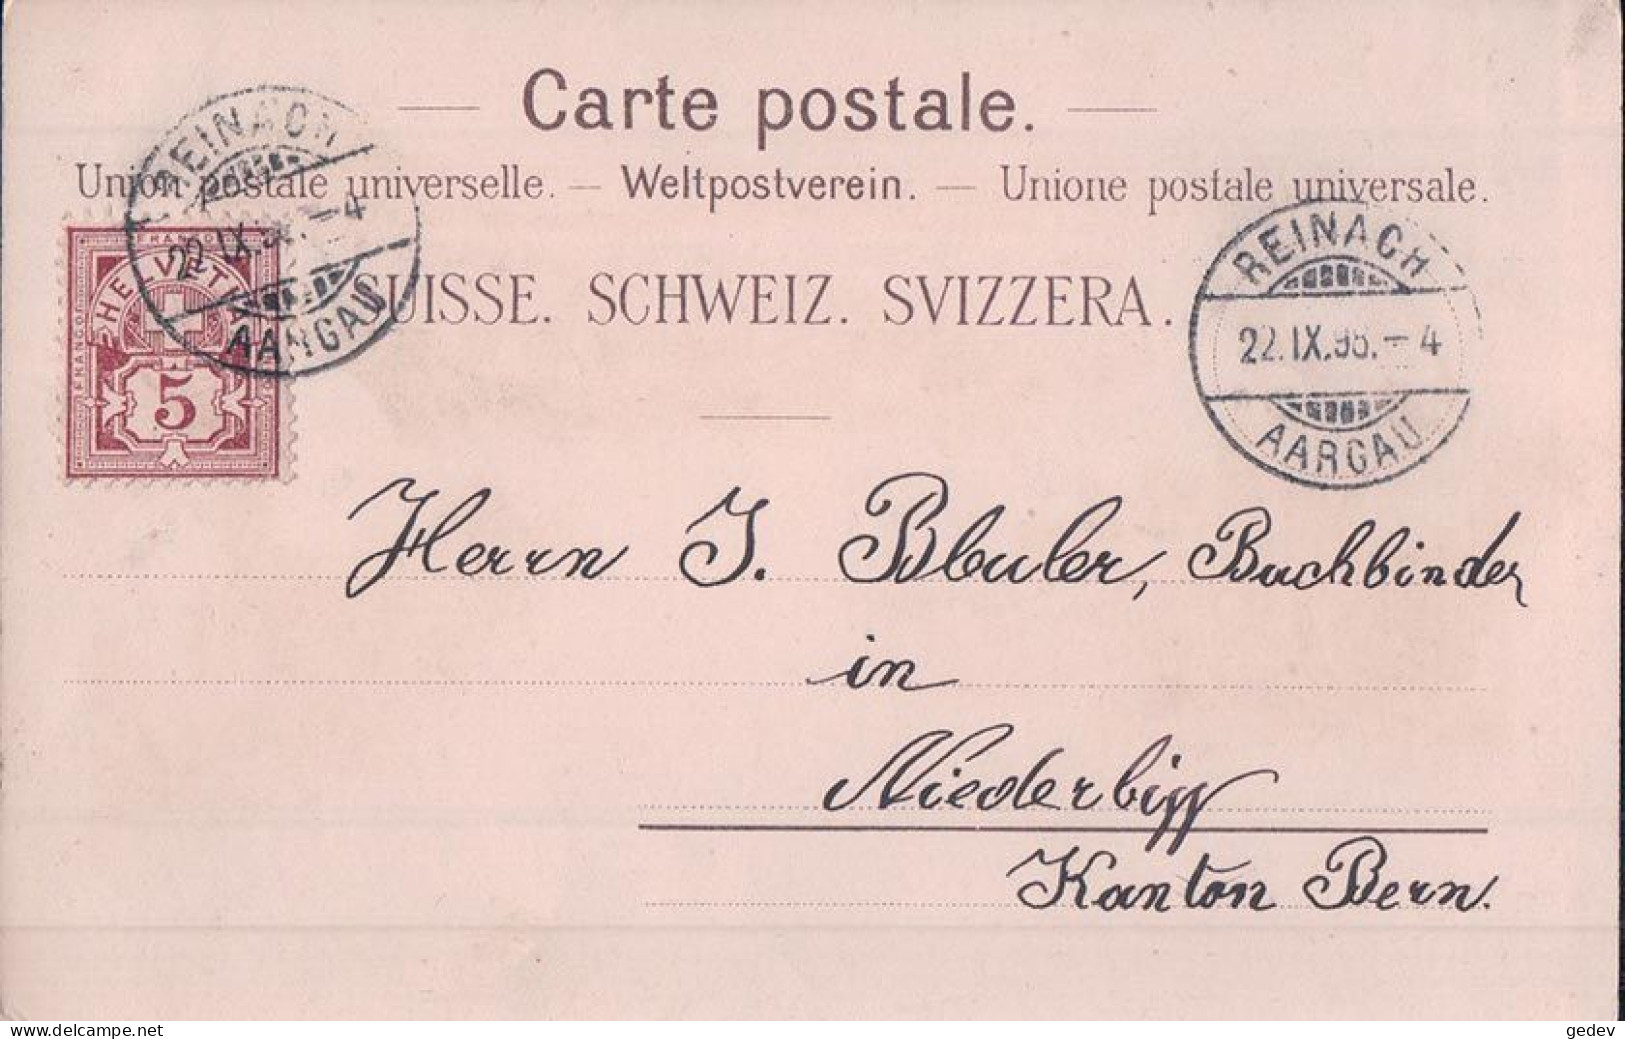 Carte postale.
Union postale universelle. — Weltpostverein. — Unione postale universale.
SUISSE. SCHWEIZ. SVIZZERA.
REINACH
22.IX.98.–4
AARGAU
FRANCO
HELVETIA
FRANCO
5
REINACH
22.IX.98.–4
AARGAU
Herrn J. Bleuler, Buchbinder
in
Niederbipp
Kanton Bern.
delcampe.net
gedev